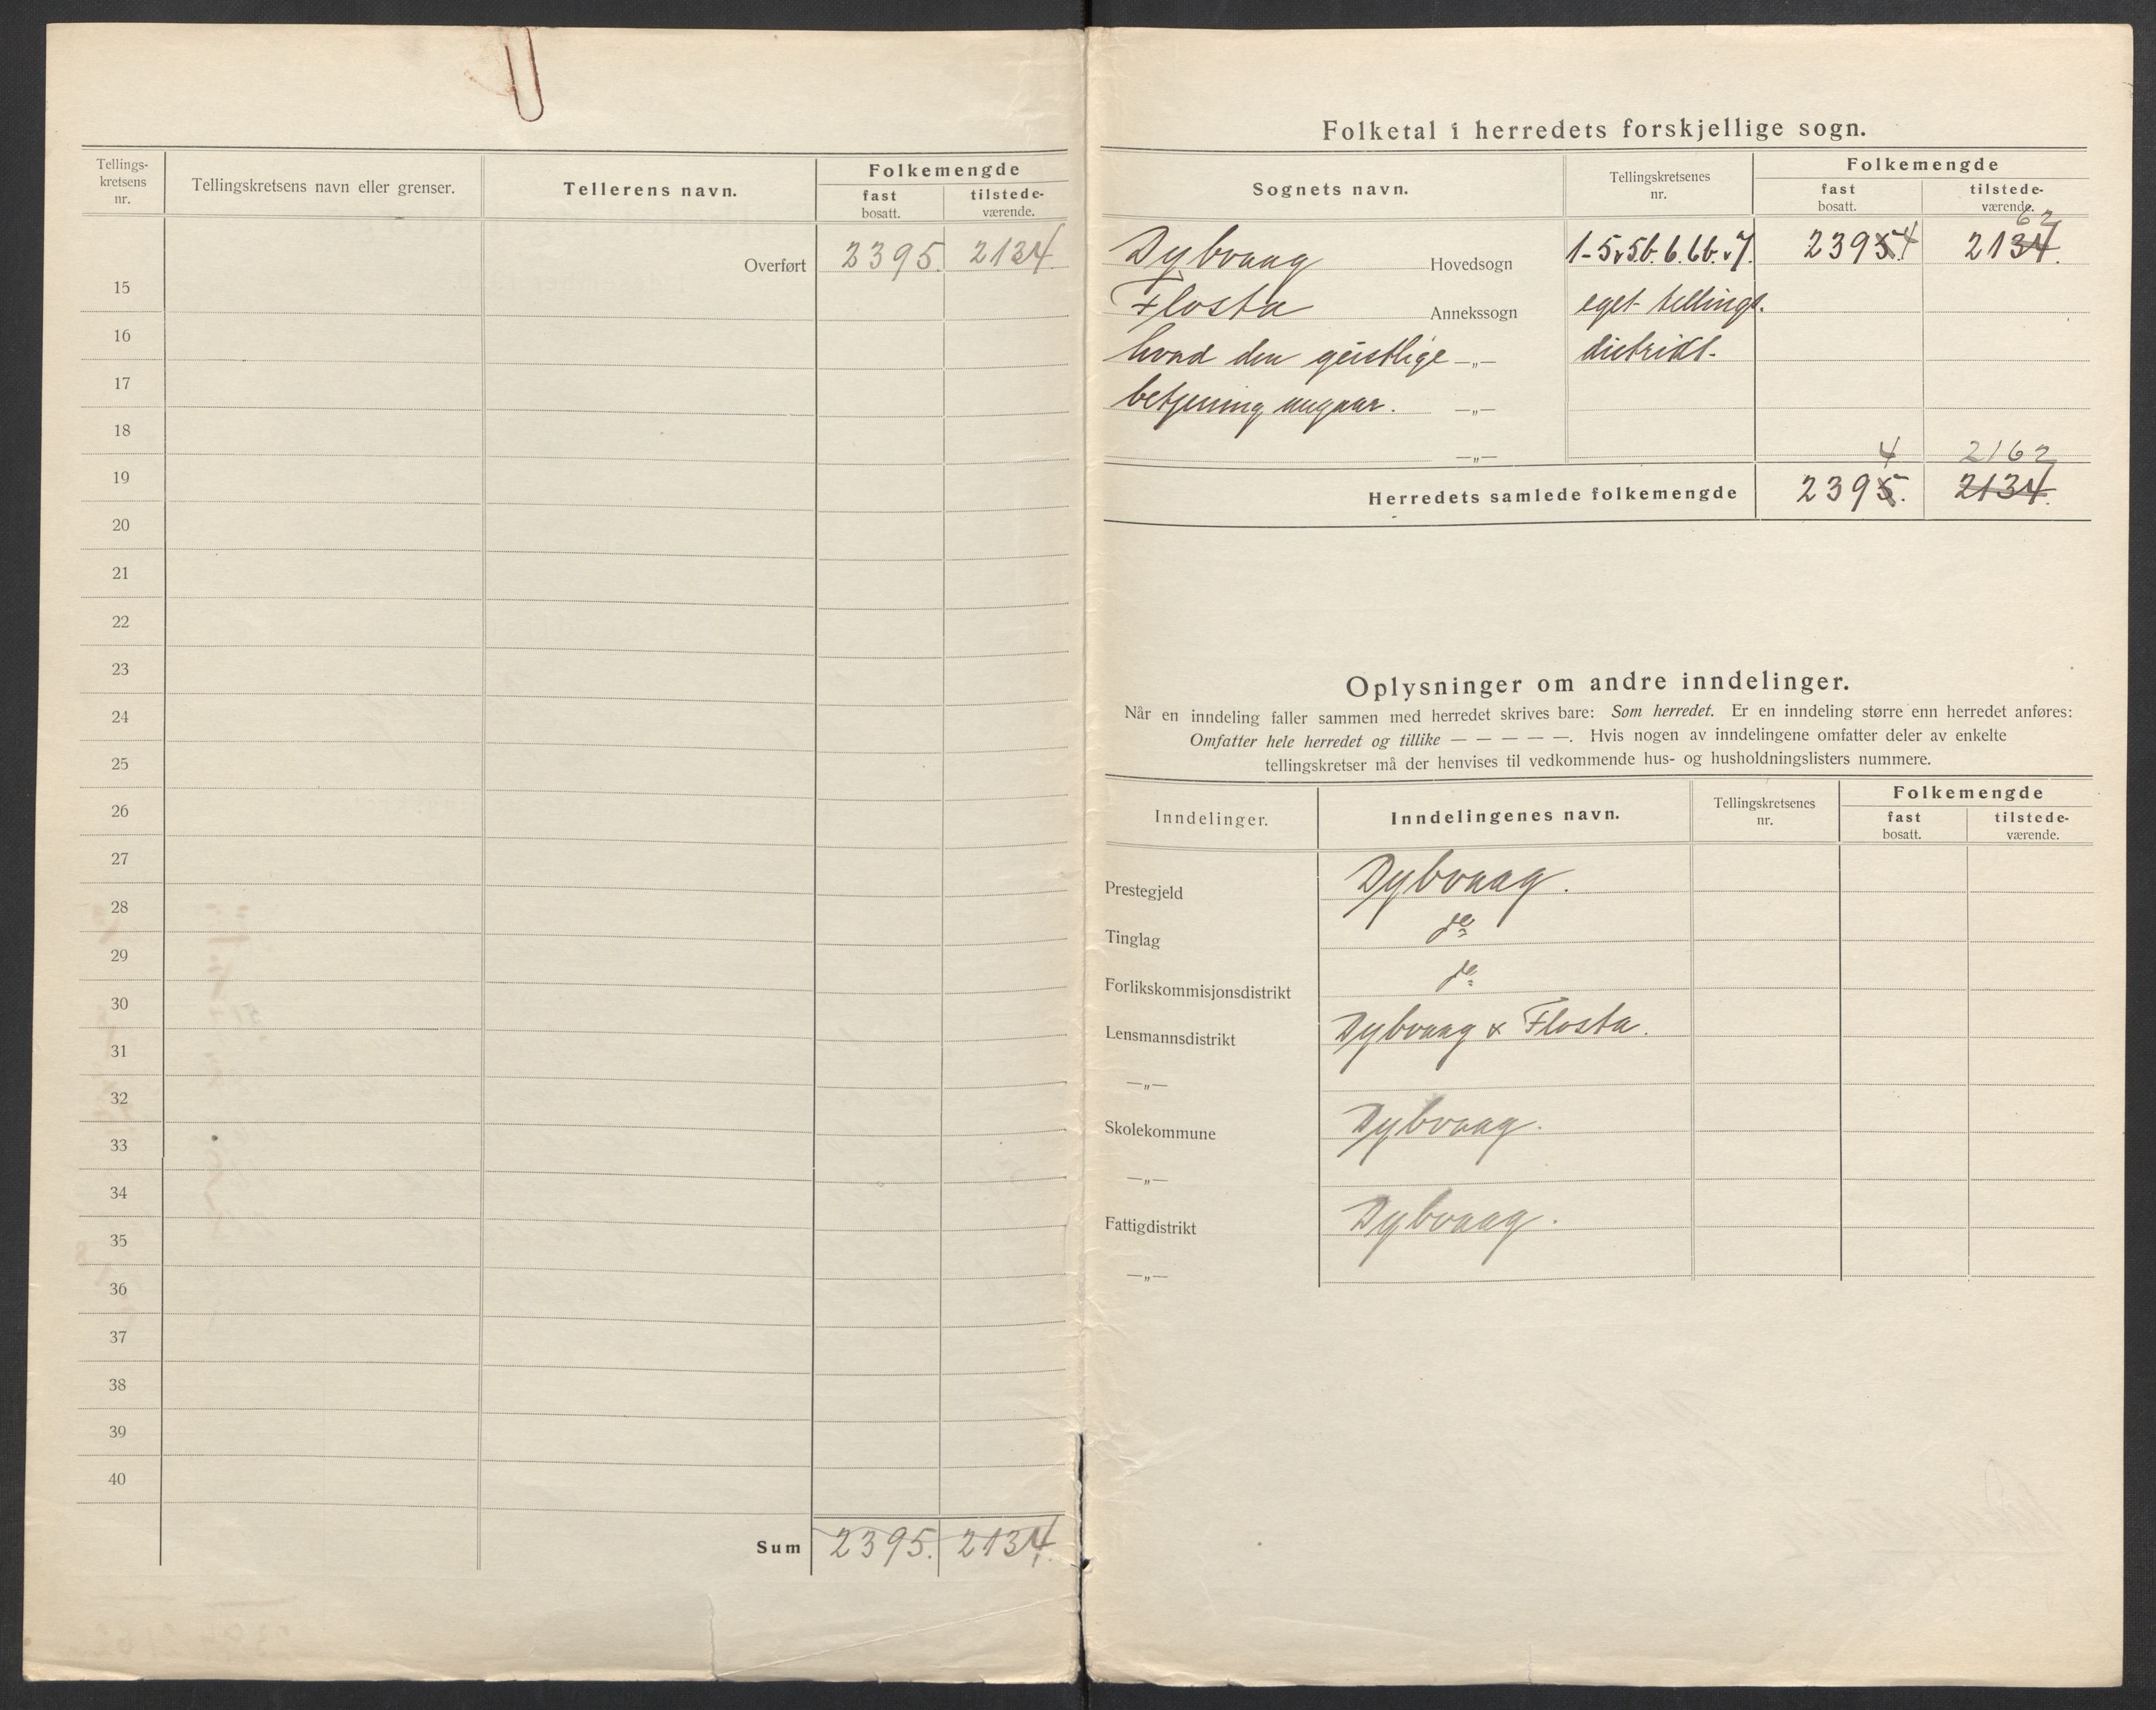 Tellings-
kretsens
nr.
Tellingskretsens navn eller grenser.
Tellerens navn.
Folkemengde
fast
bosatt.
tilstede-
værende.
Overført 2395. 2134
15
16
17
18
19
20
21
22
23
24
25
26
27
28
29
30
31
32
33
34
35
36
37
38
39
40
Sum 2395. 2134.
Folketal i herredets forskjellige sogn.
Sognets navn.
Tellingskretsenes
nr.
Folkemengde
fast
bosatt.
tilstede-
værende.
62
Dybvaag Hovedsogn 1-5, 5b. 6. 6b. 7. 2395. 4 2134.
Flosta Annekssogn eget tellings.
hvad den geistlige —„— distrikt.
betjening angaar. —„—
—„— 4 2162
Herredets samlede folkemengde 2395. 2134.
Oplysninger om andre inndelinger.
Når en inndeling faller sammen med herredet skrives bare: Som herredet. Er en inndeling større enn herredet anføres:
Omfatter hele herredet og tillike — — — — —. Hvis nogen av inndelingene omfatter deler av enkelte
tellingskretser må der henvises til vedkommende hus- og husholdningslisters nummere.
Inndelinger.
Inndelingenes navn.
Tellingskretsenes
nr.
Folkemengde
fast
bosatt.
tilstede-
værende.
Prestegjeld Dybvaag.
Tinglag do
Forlikskommisjonsdistrikt do
Lensmannsdistrikt Dybvaag & Flosta.
—„—
Skolekommune Dybvaag.
—„—
Fattigdistrikt Dybvaag.
—„—